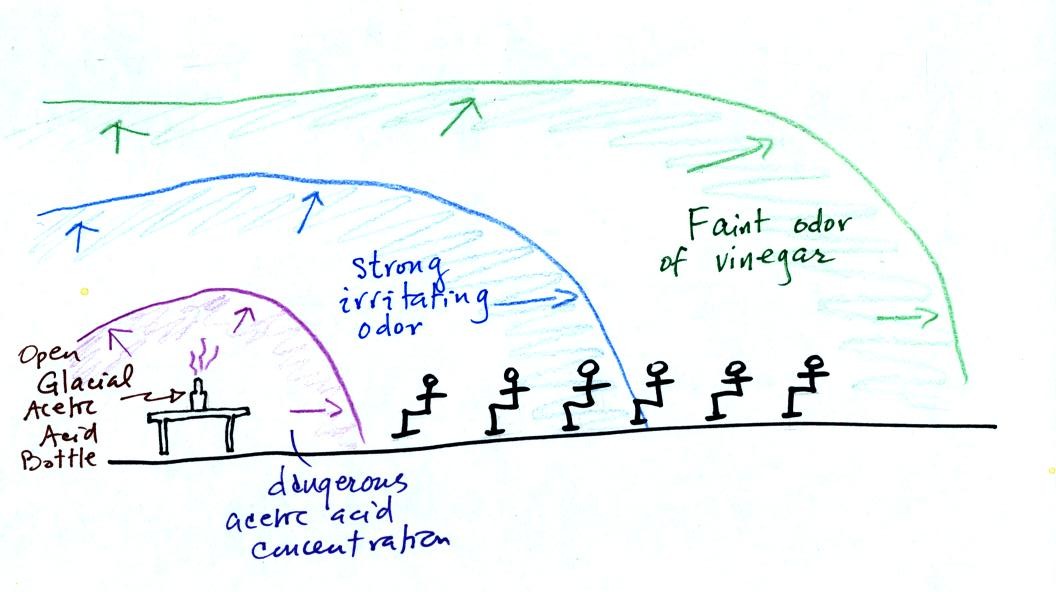 Faint odor
of vinegar
strong
irritating
odor
Open
Glacial
Acetic
Acid
Bottle
dangerous
acetic acid
concentration